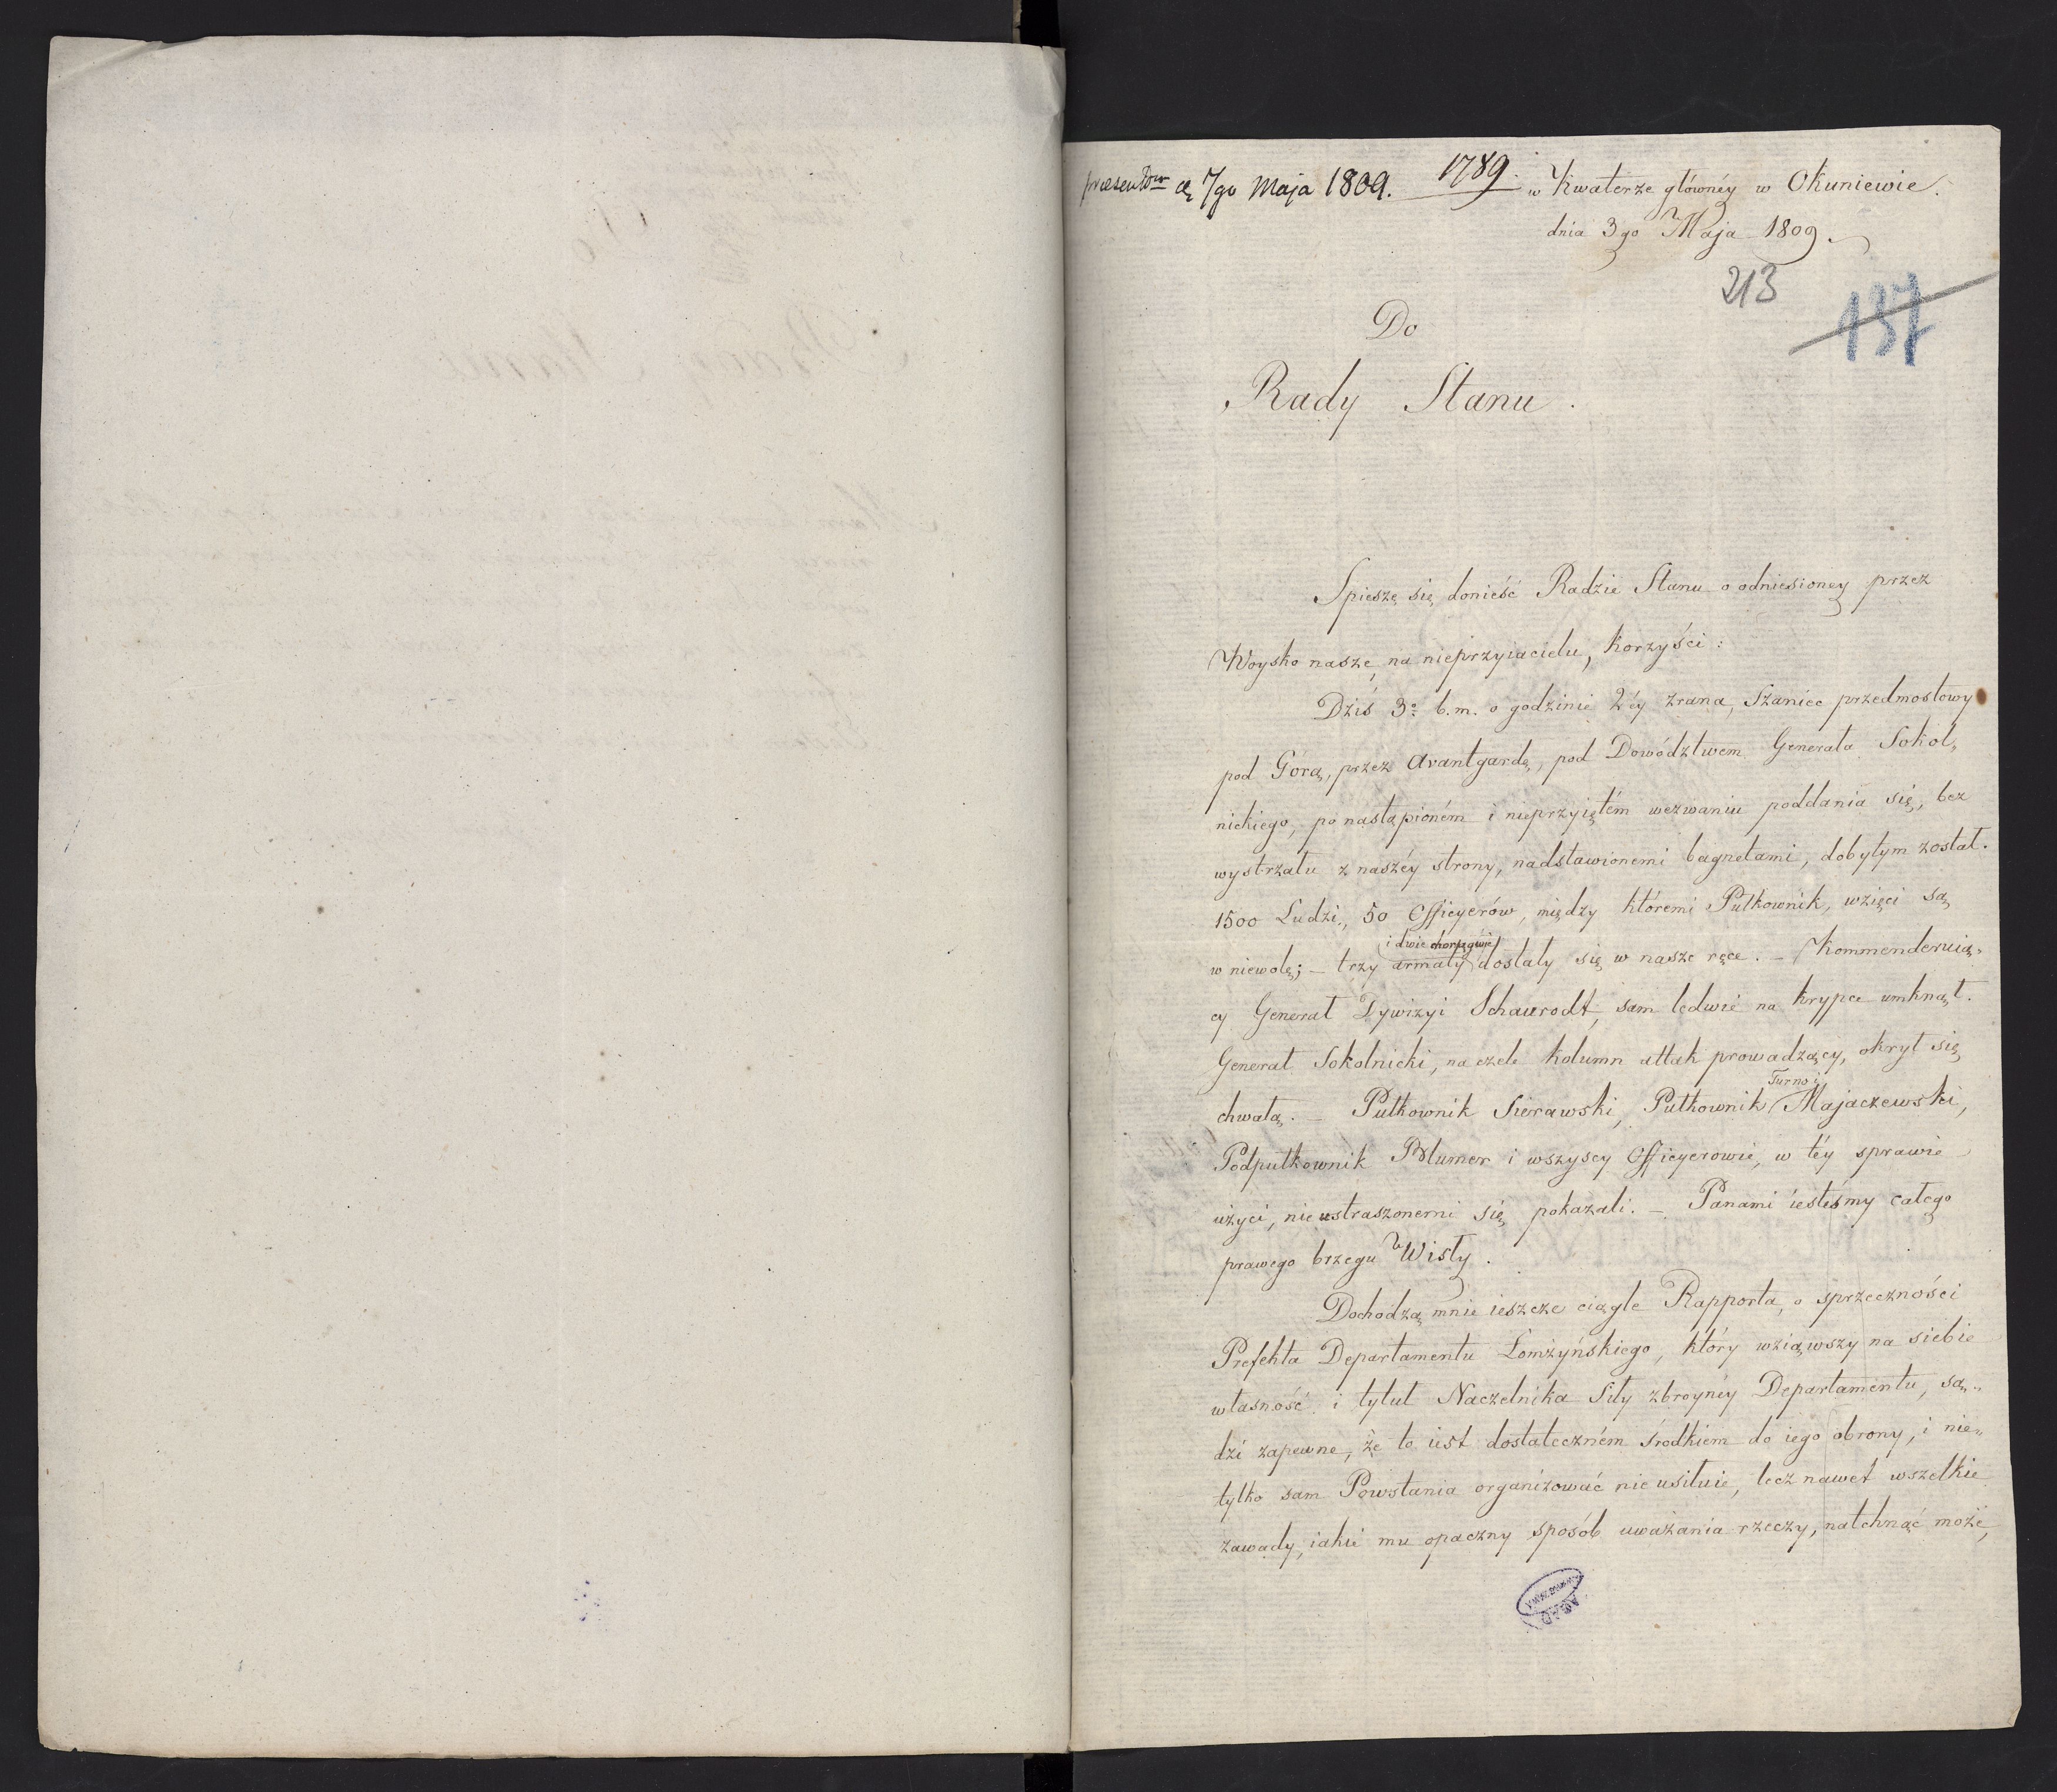 d. 7go Maja 1809. 1789. w Kwaterze głównéy w Okuniewie.
dnia 3go Maja 1809.
213
137
Do
Rady Stanu.
Spieszę się donieść Radzie Stanu o odniesioney przez
Woysko nasze, na nieprzyiacielu, korzyści:
Dziś 3o b.m. o godzinie 2éy zrana, Szaniec przedmostowy
pod Górą, przez Avantgardę, pod Dowództwem Generała Sokol„
nickiego, po nastąpioném i nieprzyiętém wezwaniu poddania się, bez
wystrzału z naszéy strony, nadstawionemi bagnetami, dobytym został.
1500 Ludzi, 50 Officyerów, między któremi Pułkownik, wzięci są
i dwie chorągwie
w niewolę; – trzy armaty dostały się w nasze ręce. – Kommenderuią„
cy Generał Dywizyi Schaurodt, sam ledwie na krypce umknął.
Generał Sokolnicki, na czele kolumn attak prowadzący, okrył się
Turno i
chwałą. – Pułkownik Sierawski, Pułkownik Majaczewski,
Podpułkownik Blumer i wszyscy Officyerowie, w téy sprawie
użyci, nieustraszonemi się pokazali. – Panami iesteśmy całego
prawego brzegu Wisły.
Dochodzą mnie ieszcze ciągle Rapporta, o sprzeczności
Prefekta Departamentu Łomżyńskiego, który wziąwszy na siebie
własność i tytuł Naczelnika Siły zbroynéy Departamentu, są„
dzi zapewne, że to iest dostateczném środkiem do iego obrony, i nie„
tylko sam Powstania organizować nie usiłuie, lecz nawet wszelkie
zawady, iakie mu opaczny sposób uważania rzeczy, natchnąć może,